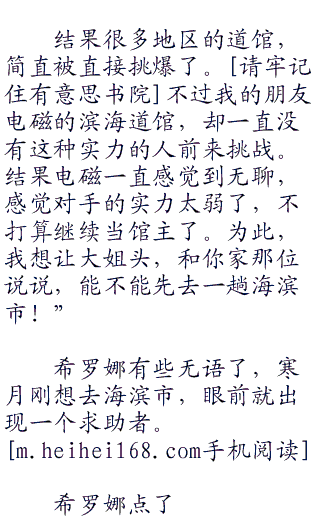 结果很多地区的道馆，
简直被直接挑爆了。[请牢记
住有意思书院]不过我的朋友
电磁的滨海道馆，却一直没
有这种实力的人前来挑战。
结果电磁一直感觉到无聊，
感觉对手的实力太弱了，不
打算继续当馆主了。为此，
我想让大姐头，和你家那位
说说，能不能先去一趟海滨
市！”
希罗娜有些无语了，寒
月刚想去海滨市，眼前就出
现一个求助者。
[m.heihei168.com手机阅读]
希罗娜点了